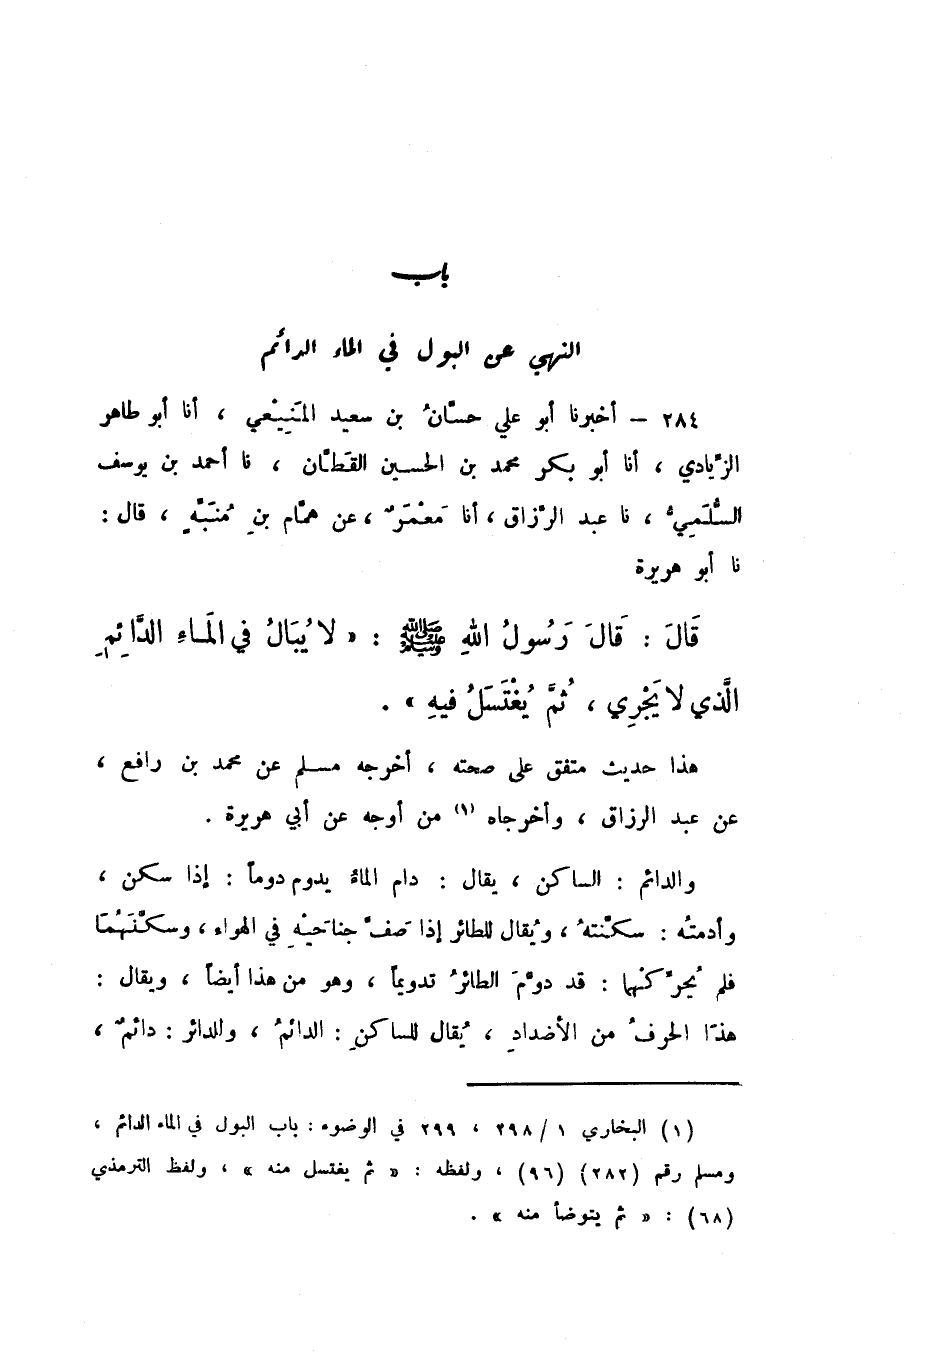 باب
النهي عن البول في الماء الدائم
٢٨٤ – أخبرنا أبو علي حسّانُ بن سعيد المَنِيْعي ، أنا أبو طاهر
الزّيادي ، أنا أبو بكر محمد بن الحسين القَطّان ، نا أحمد بن يوسف
السُّلَمِيُّ ، نا عبد الرّزاق ، أنا مَعْمَرٌ ، عن همّام بنِ مُنَبِّهٍ ، قال :
نا أبو هريرة
قَالَ : قَالَ رَسُولُ اللهِ ﷺ : « لا يُبَالُ في المَاءِ الدَّائِمِ
الَّذي لا يَجْرِي ، ثُمَّ يُغْتَسَلُ فيهِ » .
هذا حديث متفق على صحته ، أخرجه مسلم عن محمد بن رافع ،
عن عبد الرزاق ، وأخرجاه (١) من أوجه عن أبي هريرة .
والدائم : الساكن ، يقال : دام الماءُ يدوم دوماً : إذا سكن ،
وأدمتُه : سكّنتهُ ، ويُقال للطائر إذا صَفّ جناحَيْهِ في الهواء ، وسكّنَهُمَا
فلم يُحرّكْهما : قد دوّمَ الطائرُ تدويماً ، وهو من هذا أيضاً ، ويقال :
هذا الحرفُ من الأضدادِ ، يُقال للساكنِ : الدائمُ ، وللدائر : دائمٌ ،
(١) البخاري ١ / ٢٩٨ ، ٢٩٩ في الوضوء : باب البول في الماء الدائم ،
ومسلم رقم (٢٨٢) (٩٦) ، ولفظه : « ثم يغتسل منه » ، ولفظ الترمذي
(٦٨) : « ثم يتوضأ منه » .